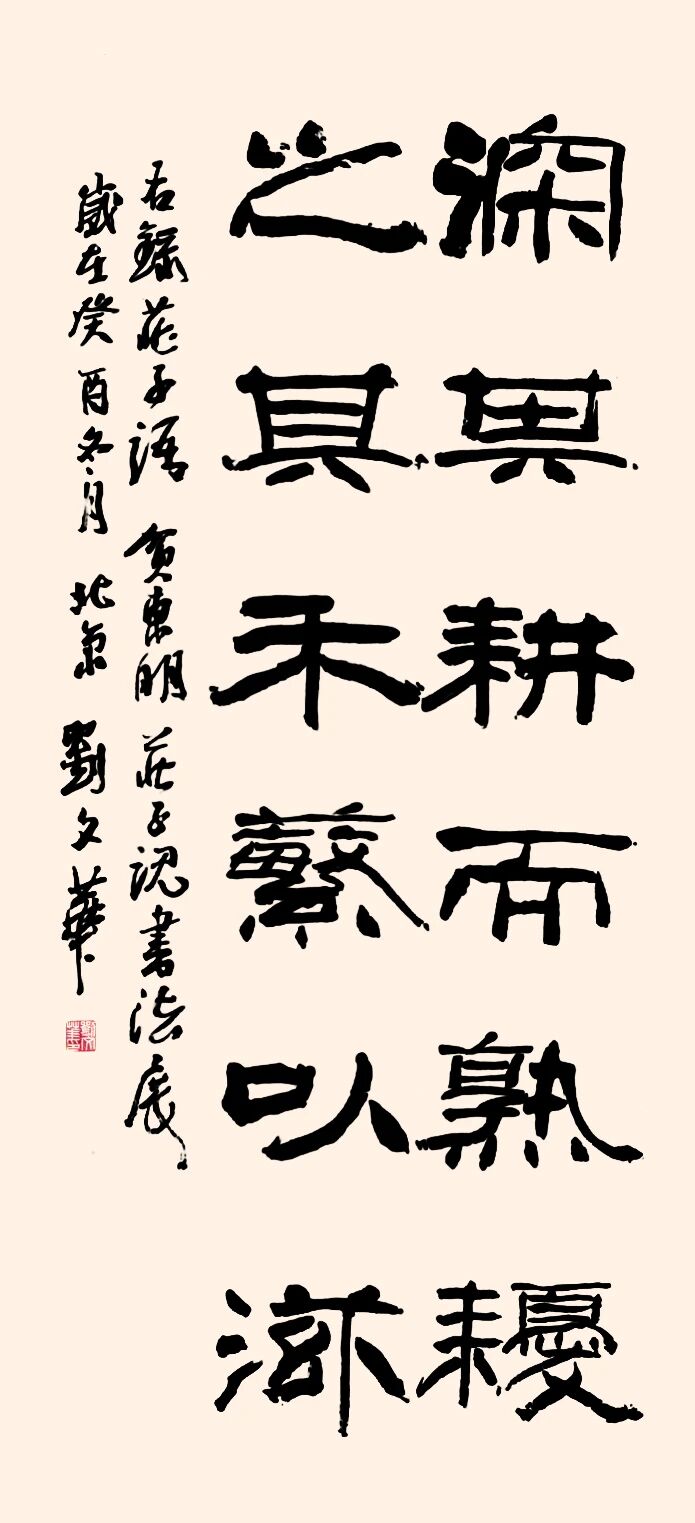 深其耕而熟耰
之其禾蘩以滋
右錄莊子語 賀東明莊子書法展
歲在癸酉冬月 北京 劉文華